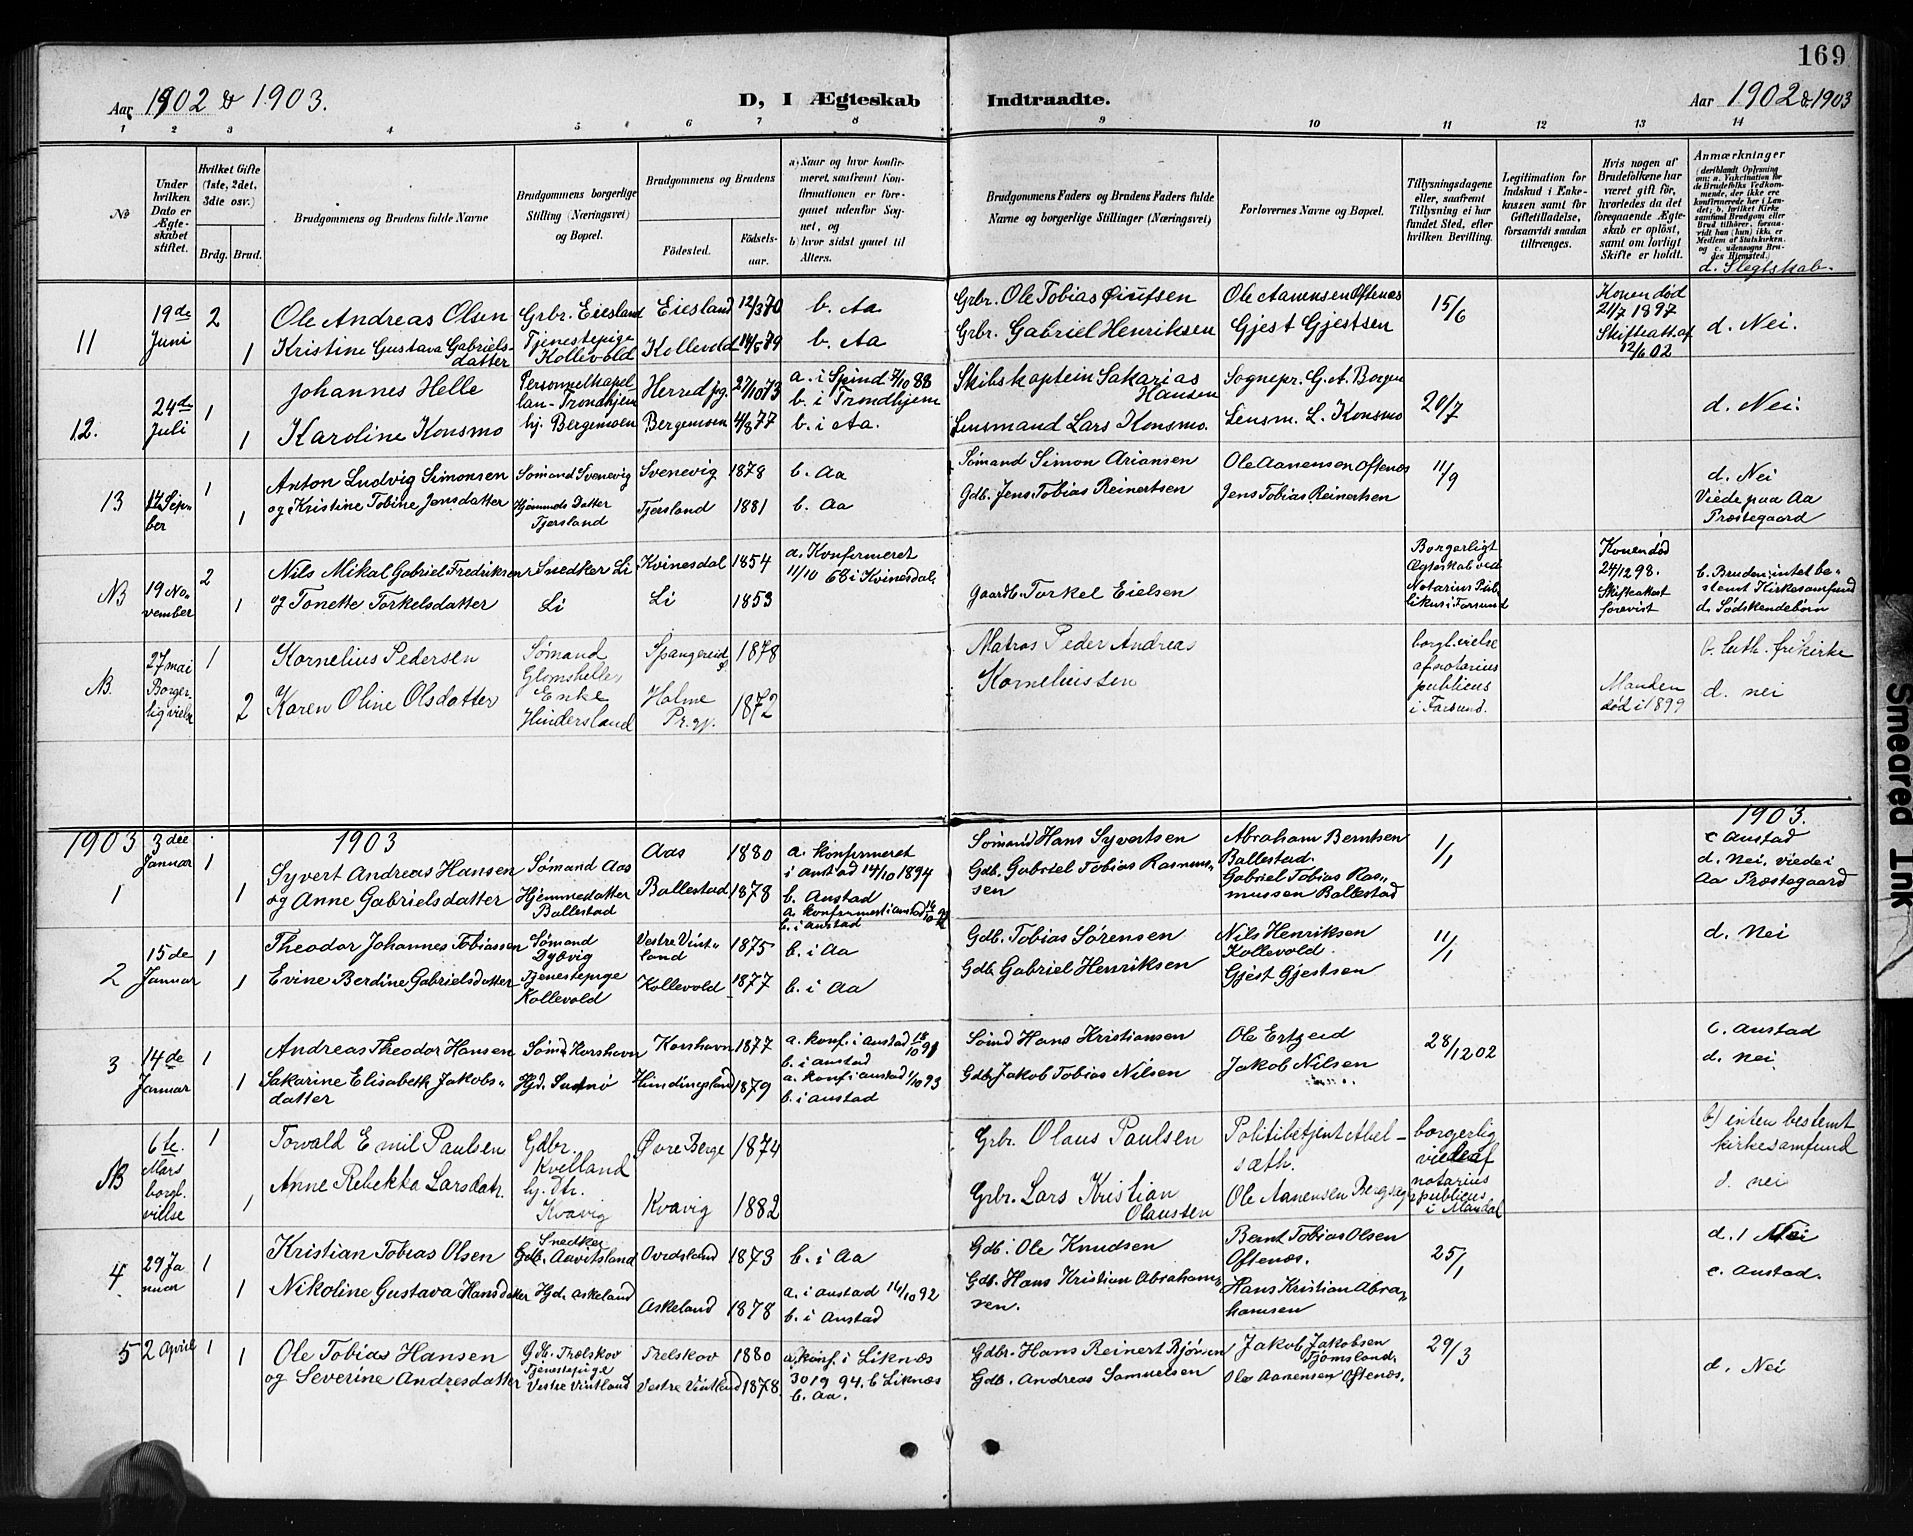 169
Aar 1902 & 1903.
D, I Ægteskab
Indtraadte.
Aar 1902 & 1903
1 2 3 4 5 6 7 8 9 10 11 12 13 14
No
Under hvilken Dato er Ægteskabet stiftet.
Hvilket Gifte (1ste, 2det, 3die osv.)
Brdg. Brud.
Brudgommens og Brudens fulde Navne
Brudgommens borgerlige Stilling (Næringsvei) og Bopæl.
Brudgommens og Brudens
Fødested.
Fødselsaar.
a) Naar og hvor konfirmeret, saafremt Konfirmationen er foregaaet udenfor Sognet, og
b) hvor sidst gaaet til Alters.
Brudgommens Faders og Brudens Faders fulde Navne og borgerlige Stillinger (Næringsvei)
Forlovernes Navne og Bopæl.
Tillysningsdagene eller, saafremt Tillysning ei har fundet Sted, efter hvilken Bevilling.
Legitimation for Indskud i Enkekassen samt for Giftetilladelse, forsaavidt saadan tiltrænges.
Hvis nogen af Brudefolkene har været gift før, hvorledes da det foregaaende Ægteskab er opløst, samt om lovligt Skifte er holdt.
Anmærkninger
(deriblandt Oplysning om: a. Vakcination for de Brudefolks Vedkommende, der ikke ere konfirmerede her i Landet; b. hvilket Kirkesamfund Brudgom eller Brud tilhører, forsaavidt han (hun) ikke er Medlem af Statskirken, og c. udensogns Brudes Hjemsted.)
d. Slegtskab.
11
19de Juni
2
Ole Andreas Olsen
Grbr. Eiesland
Eiesland
12/3 70
b. Aa
Grbr. Ole Tobias
Ole Aanensen Oftenæs
15/6
Konen død 21/7 1897
Skifteatt. af 12/6 02
d. Nei.
1
Kristine Gustava Gabrielsdatter
Tjenestepige Kollevold
Kollevold
b. Aa
Grbr. Gabriel Henriksen
Gjest Gjestsen
12.
24de Juli
1
Johannes Helle
Personnelkapellan - Trondhjem
Herred prg.
27/10 73
a. i Spind 7/10 88
b. i Trondhjem
Skibskaptein Sakarias Hansen
Sognepr. G. A. Borgen
20/7
d. Nei.
1
Karoline Konsmo
hj. Bergemoen
Bergemoen
4/8 77
b. i Aa.
Lensmand Lars Konsmo.
Lensm. L. Konsmo
13
12 September
1
Anton Ludvig Simonsen
Sømand Svenevig
Svenevig
1878
b. Aa
Sømand Simon Ariansen
Ole Aanensen Oftenæs
11/9
d. Nei
Viede paa Aa Præstegaard
1
og Kristine Tobine Jensdatter
Hjemmeds Datter Tjersland
Tjersland
1881
b. Aa
Gdb. Jens Tobias Reinertsen
Jens Tobias Reinertsen
NB
19 November
2
Nils Mikal Gabriel Fredriksen
Snedker Li
Kvinesdal
1854
a. Konfirmeret 11/10 68 i Kvinesdal.
Borgerligt Ægteskab ved Notarius Publikus i Farsund
Konen død 24/12 98.
Skifteakt forevist
b. Bruden: intet bestemt Kirkesamfund
d. Sødskendebørn
1
og Tonette Torkelsdatter
Li
Li
1853
Gaardb. Torkel Eielsen
NB.
27 mai
Borgerlig vielse
1
Kornelius Pedersen
Sømand Glomsheller
Spangereid
1878
Matros Peder Andreas Korneliussen
borgl. vielse af notarius publicus i Farsund.
Manden død i 1899
b. luth. frikirke
d. nei
2
Karen Oline Olsdatter
Enke Hindersland
Halme Pr. gj.
1872
1903
1903
1903.
1
3die Januar
1
Syvert Andreas Hansen
Sømand Aas
Aas
1880
a. konfirmeret i Austad 14/10 1894
b. Austad
Sømand Hans Syvertsen
Abraham Berntsen Ballestad.
1/1
c Austad
d. Nei, viede i Aa Præstegaard
1
og Anne Gabrielsdatter
Hjemmedatter Ballestad
Ballestad
1878
a. konfirmert i austad
b. i austad
Gdb. Gabriel Tobias Rasmussen
Gabriel Tobias Rasmussen Ballestad
2
15de Januar
1
Theodor Johannes Tobiassen
Sømand Dyåvig
Vestre Vintland
1875
b. i Aa
Gdb. Tobias Sørensen
Nils Henriksen Kollevold
11/1
d. Nei
1
Evine Berdine Gabrielsdatter
Tjenestepige Kollevold
Kollevold
1877
b. i Aa
Gdb. Gabriel Henriksen
Gjest Gjestsen
3
14de Januar
1
Andreas Theodor Hansen
Sømd. Korshavn
Korshavn
1877
a. konf. i austad
b. i austad
Sømd Hans Kristiansen
Ole Ertzeid
28/12 02
c. austad
d. nei
1
Sakarine Elisabeth Jakobsdatter
Hjd.
1879
a. konf i austad 1/10 93
b. i austad
Gdb. Jakob Tobias Nilsen
Jakob Nilsen
NB
6te. Mars
borgl. villse
1
Torvald Emil Paulsen
Gdbr. Kvelland
Øvre Berge
1874
Grbr. Olaus Paulsen
Politibetjent Abelsæth.
borgerlig viede af notarius publicus i Mandal
b) inten bestemt kirkesamfund
d. nei
1
Anne Rebekka Larsdatr.
hj. Dtr. Kvavig
Kvavig
1882
Grbr. Lars Kristian Olaussen
Ole Aanensen
4
29 Januar
1
Kristian Tobias Olsen
Snedker
Gdb. Aavitsland
Ovedsland
1873
b. i Aa
Gdb. Ole Knudsen
Bernt Tobias Olsen Oftenæs.
25/1
d. Nei
c. Austad.
1
Nikoline Gustava Hansdatter
Hjd. Askeland
Askeland
1878
a. i austad 16/10 92
b. i Austad
Gdb. Hans Kristian Abrahamsen.
Hans Kristian Abrahamsen
5
2 April
1
Ole Tobias Hansen
Gdb. Trælskov
Trelskov
1880
a. konf. i Liknæs 30/9 94. b Liknæs
Gdbr. Hans Reinert Bjørnsen
Jakob Jakobsen Tjømsland.
29/3
d. Nei
1
og Severine Andresdatter
Tjenestepige Vestre Vintland
Vestre Vintland
1878.
b. Aa.
Gdb. Andreas Samuelsen
Ole Aanensen Oftenæs.
Smeared Ink